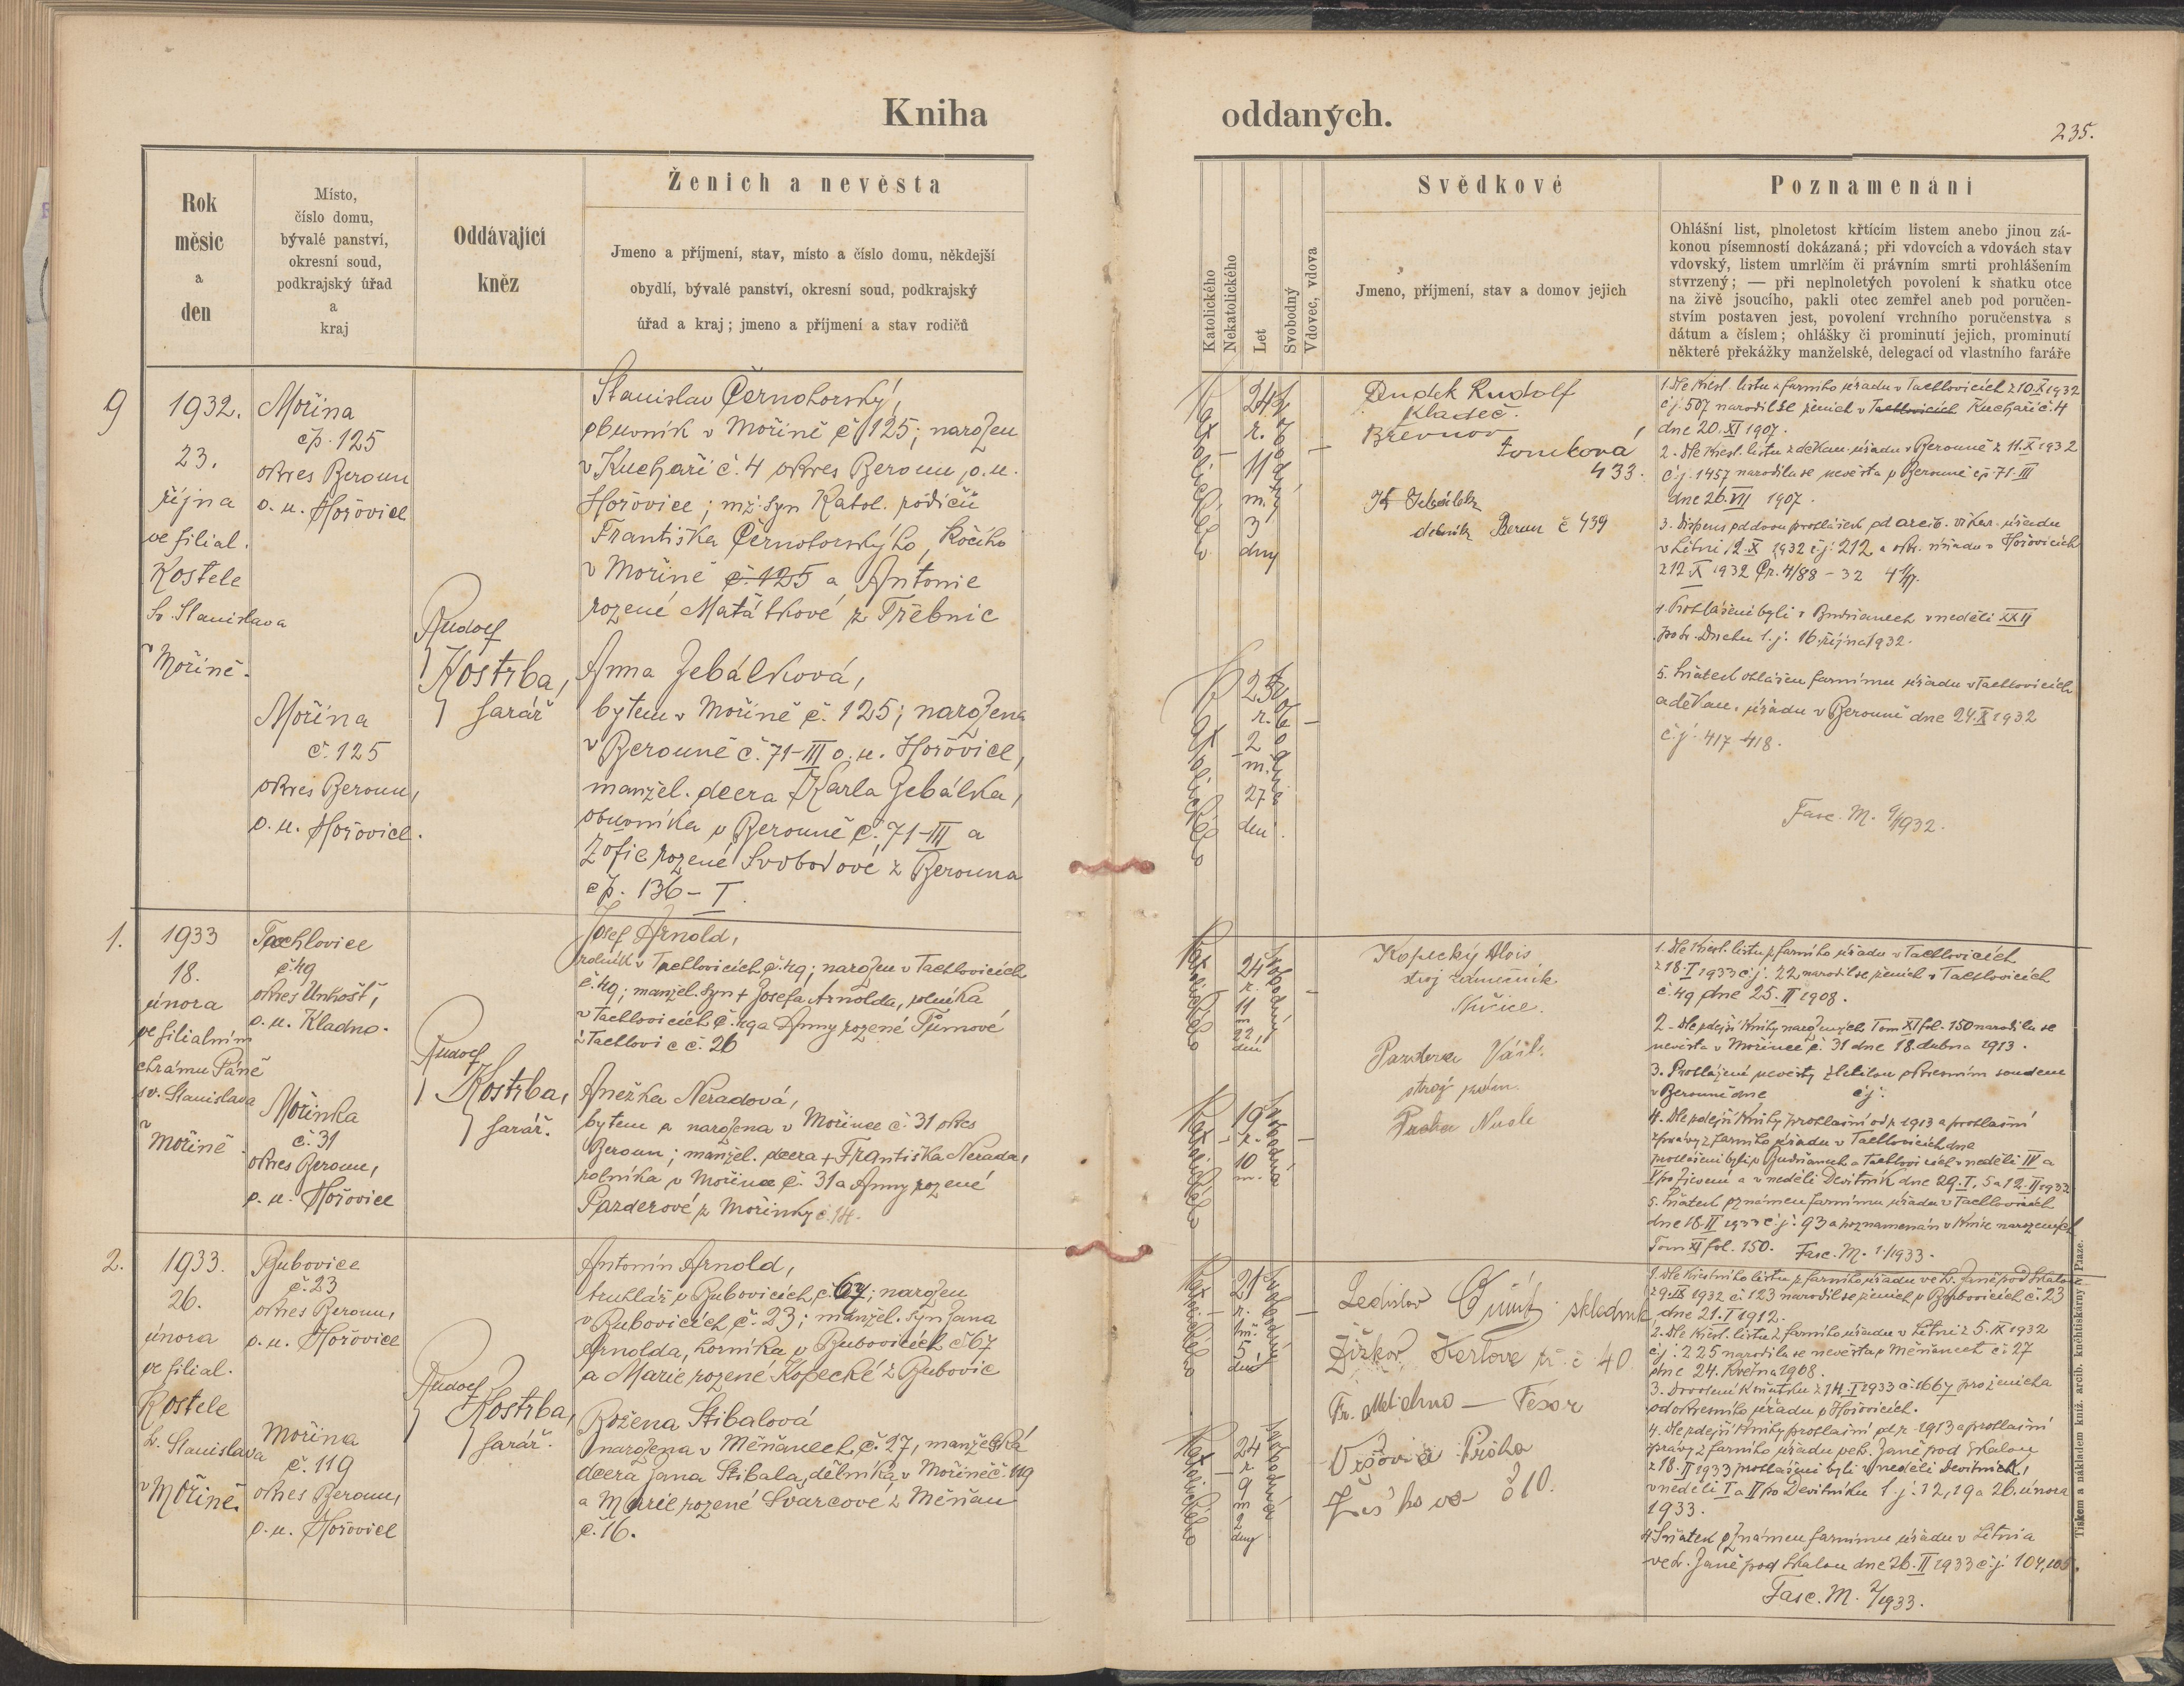 Kniha
oddaných.
235.
Rok
měsíc
a
den
Místo,
číslo domu,
bývalé panství,
okresní soud,
podkrajský úřad
a
kraj
Oddávající
kněz
Ženich a nevěsta
Jmeno a příjmení, stav, místo a číslo domu, někdejší
obydlí, bývalé panství, okresní soud, podkrajský
úřad a kraj; jmeno a příjmení a stav rodičů
Katolického
Nekatolického
Let
Svobodný
Vdovec, vdova
Svědkové
Jmeno, příjmení, stav a domov jejich
Poznamenání
Ohlášní list, plnoletost křtícím listem anebo jinou zá-
konou písemností dokázaná; při vdovcích a vdovách stav
vdovský, listem umrlčím či právním smrti prohlášením
stvrzený; — při neplnoletých povolení k sňatku otce
na živě jsoucího, pakli otec zemřel aneb pod poručen-
stvím postaven jest, povolení vrchního poručenstva s
dátum a číslem; ohlášky či prominutí jejich, prominutí
některé překážky manželské, delegací od vlastního faráře
9
1932.
23.
října
ve filial.
Kostele
Sv. Stanislava
v Mořině.
Mořina
čp. 125
okres Beroun
o. u. Hořovice
Mořina
č. 125
okres Beroun,
o. u. Hořovice.
Rudolf
Kostrba,
farář
Stanislav Černohorský,
obuvník v Mořině č 125; narozen
v Kuchaři č. 4 okres Beroun o. u.
Hořovice; mž. syn Katol. rodičů
Františka Černohorského, Kočího
v Mořině č. 125 a Antonie
rozené Matátkové z Třebnic
Anna Jebálková,
bytem v Mořině č. 125; narozena
v Berouně č. 71-III o. u. Hořovice,
manžel. dcera Karla Jebálka,
obuvníka v Berouně č. 71-III a
Žofie rozené Svobodové z Berouna
čp. 136-I.
Katolického
24 r. 11 m. 3 dny
Katolického
25 r. 2 m. 27 dní.
Dudek Rudolf
Kladeč.
Břevnov
Tomkova
433.
Beroun č 439
1. Dle křest. listu z farního úřadu v Tachlovicích z 10.X 1932
č j. 507 narodil se ženich v Tachlovicích Kuchaři č. 4
dne 20. XI 1907.
2. Dle křest. listu z děkan. úřadu v Berouně z 11.X 1932
č j. 1457 narodila se nevěsta v Berouně čp. 71-III
dne 26. VII 1907.
3. Dispens od dvou prohlášek od arcib. vikar. úřadu
v Litni 12.X 1932 č j. 212 a okr. úřadu v Hořovicích
z 12 X 1932
4. Prohlášeni byli v Budňanech v neděli XXII
po sv. Duchu t. j. 16. října 1932.
5. Sňatek ohlášen farnímu úřadu v Tachlovicích
a děkan. úřadu v Berouně dne 24.X 1932
č. j. 417-418.
Fasc. M. 9/1932.
1.
1933
18.
února
ve filialním
chrámu Páně
sv. Stanislava
v Mořině.
Tachlovice
č. 49
okres Unhošť,
o. u. Kladno.
Mořinka
č. 31
okres Beroun,
o. u. Hořovice
Rudolf
Kostrba,
farář.
Josef Arnold,
rolník v Tachlovicích č. 49; narozen v Tachlovicích
č. 49; manžel. syn + Josefa Arnolda, rolníka
v Tachlovicích č. 49 a Anny rozené Tůmové
z Tachlovic č. 26
Anežka Neradová,
bytem a narozena v Mořince č. 31 okres
Beroun; manžel. dcera + Františka Nerada,
rolníka v Mořince č. 31 a Anny rozené
Pazderové z Mořinky č. 14.
Katolického
24 r. 11 m 22 dní
Katolického
19 r. 10 m.
Kopecký Alois
stroj. zámečník
Nučice.
Pazdera
Praha Nusle
1. Dle křest. listu z farního úřadu v Tachlovicích
z 18. I 1933 č j. 22 narodil se ženich v Tachlovicích
č. 49 dne 25. II 1908.
2. Dle zdejší Knihy narozených Tom XI fol. 150 narodila se
nevěsta v Mořince č. 31 dne 18. dubna 1913.
3. Prohlášení nevěsty zletilou okresním soudem
v Berouně dne č j.
4. Dle zdejší Knihy prohlašní od r. 1913 a prohlašní
zprávy z farního úřadu v Tachlovicích dne
prohlášeni byli v Budňanech a Tachlovicích v neděli IV a
V po Zjevení a v neděli Devítník dne 29. I, 5 a 12. II 1933
5. Sňatek oznámen farnímu úřadu v Tachlovicích
dne 18. II 1933 č j. 93 a poznamenán v Knize narozených
Tom XI fol. 150. Fasc. M. 1/1933.
2.
1933.
26.
února
ve filial.
Kostele
sv. Stanislava
v Mořině.
Bubovice
č. 23
okres Beroun,
o. u. Hořovice
Mořina
č. 119
okres Beroun,
o. u. Hořovice
Rudolf
Kostrba,
farář.
Antonín Arnold,
truhlář v Bubovicích č. 67; narozen
v Bubovicích č. 23; manžel. syn Jana
Arnolda, horníka v Bubovicích č 67
a Marie rozené Kopecké z Bubovic
Božena Stibalová
narozena v Měňanech č. 27, manželská
dcera Jana Stibala, dělníka v Mořině č. 119
a Marie rozené Švarcové z Měňan
č. 16.
Katolického
21 r. 1 m. 5 dní
Katolického
24 r. 9 m 2 dny
Ladislav skladník
Žižkov Karlova tř. č. 40.
Fr. Melichno — Tesar
Vršovice Praha
Žižkova č 10.
1. Dle křestního listu z farního úřadu ve sv. Janě pod Skalou
z 9. IX 1932 č. 123 narodil se ženich v Bubovicích č. 23
dne 21. I 1912.
2. Dle křest. listu z farního úřadu v Litni z 5. IX 1932
č j. 225 narodila se nevěsta v Měňanech č. 27
dne 24. Května 1908.
3. Dovolení K sňatku z 14. I 1933 č. 1667 pro ženicha
od okresního úřadu v Hořovicích.
4. Dle zdejší Knihy prohlašní od r. 1913 a prohlašní
zprávy z farního úřadu ve sv. Janě pod Skalou
z 18. II 1933 prohlášeni byli v neděli Devítník,
v neděli I a II po Devítníku t. j. 12, 19 a 26. února
1933.
4 Sňatek oznámen farnímu úřadu v Litni a
ve sv. Janě pod Skalou dne 26. II 1933 č. j. 104, 105.
Fasc. M. 2/1933.
Tiskem a nákladem kníž. arcib. knihtiskárny v Praze.